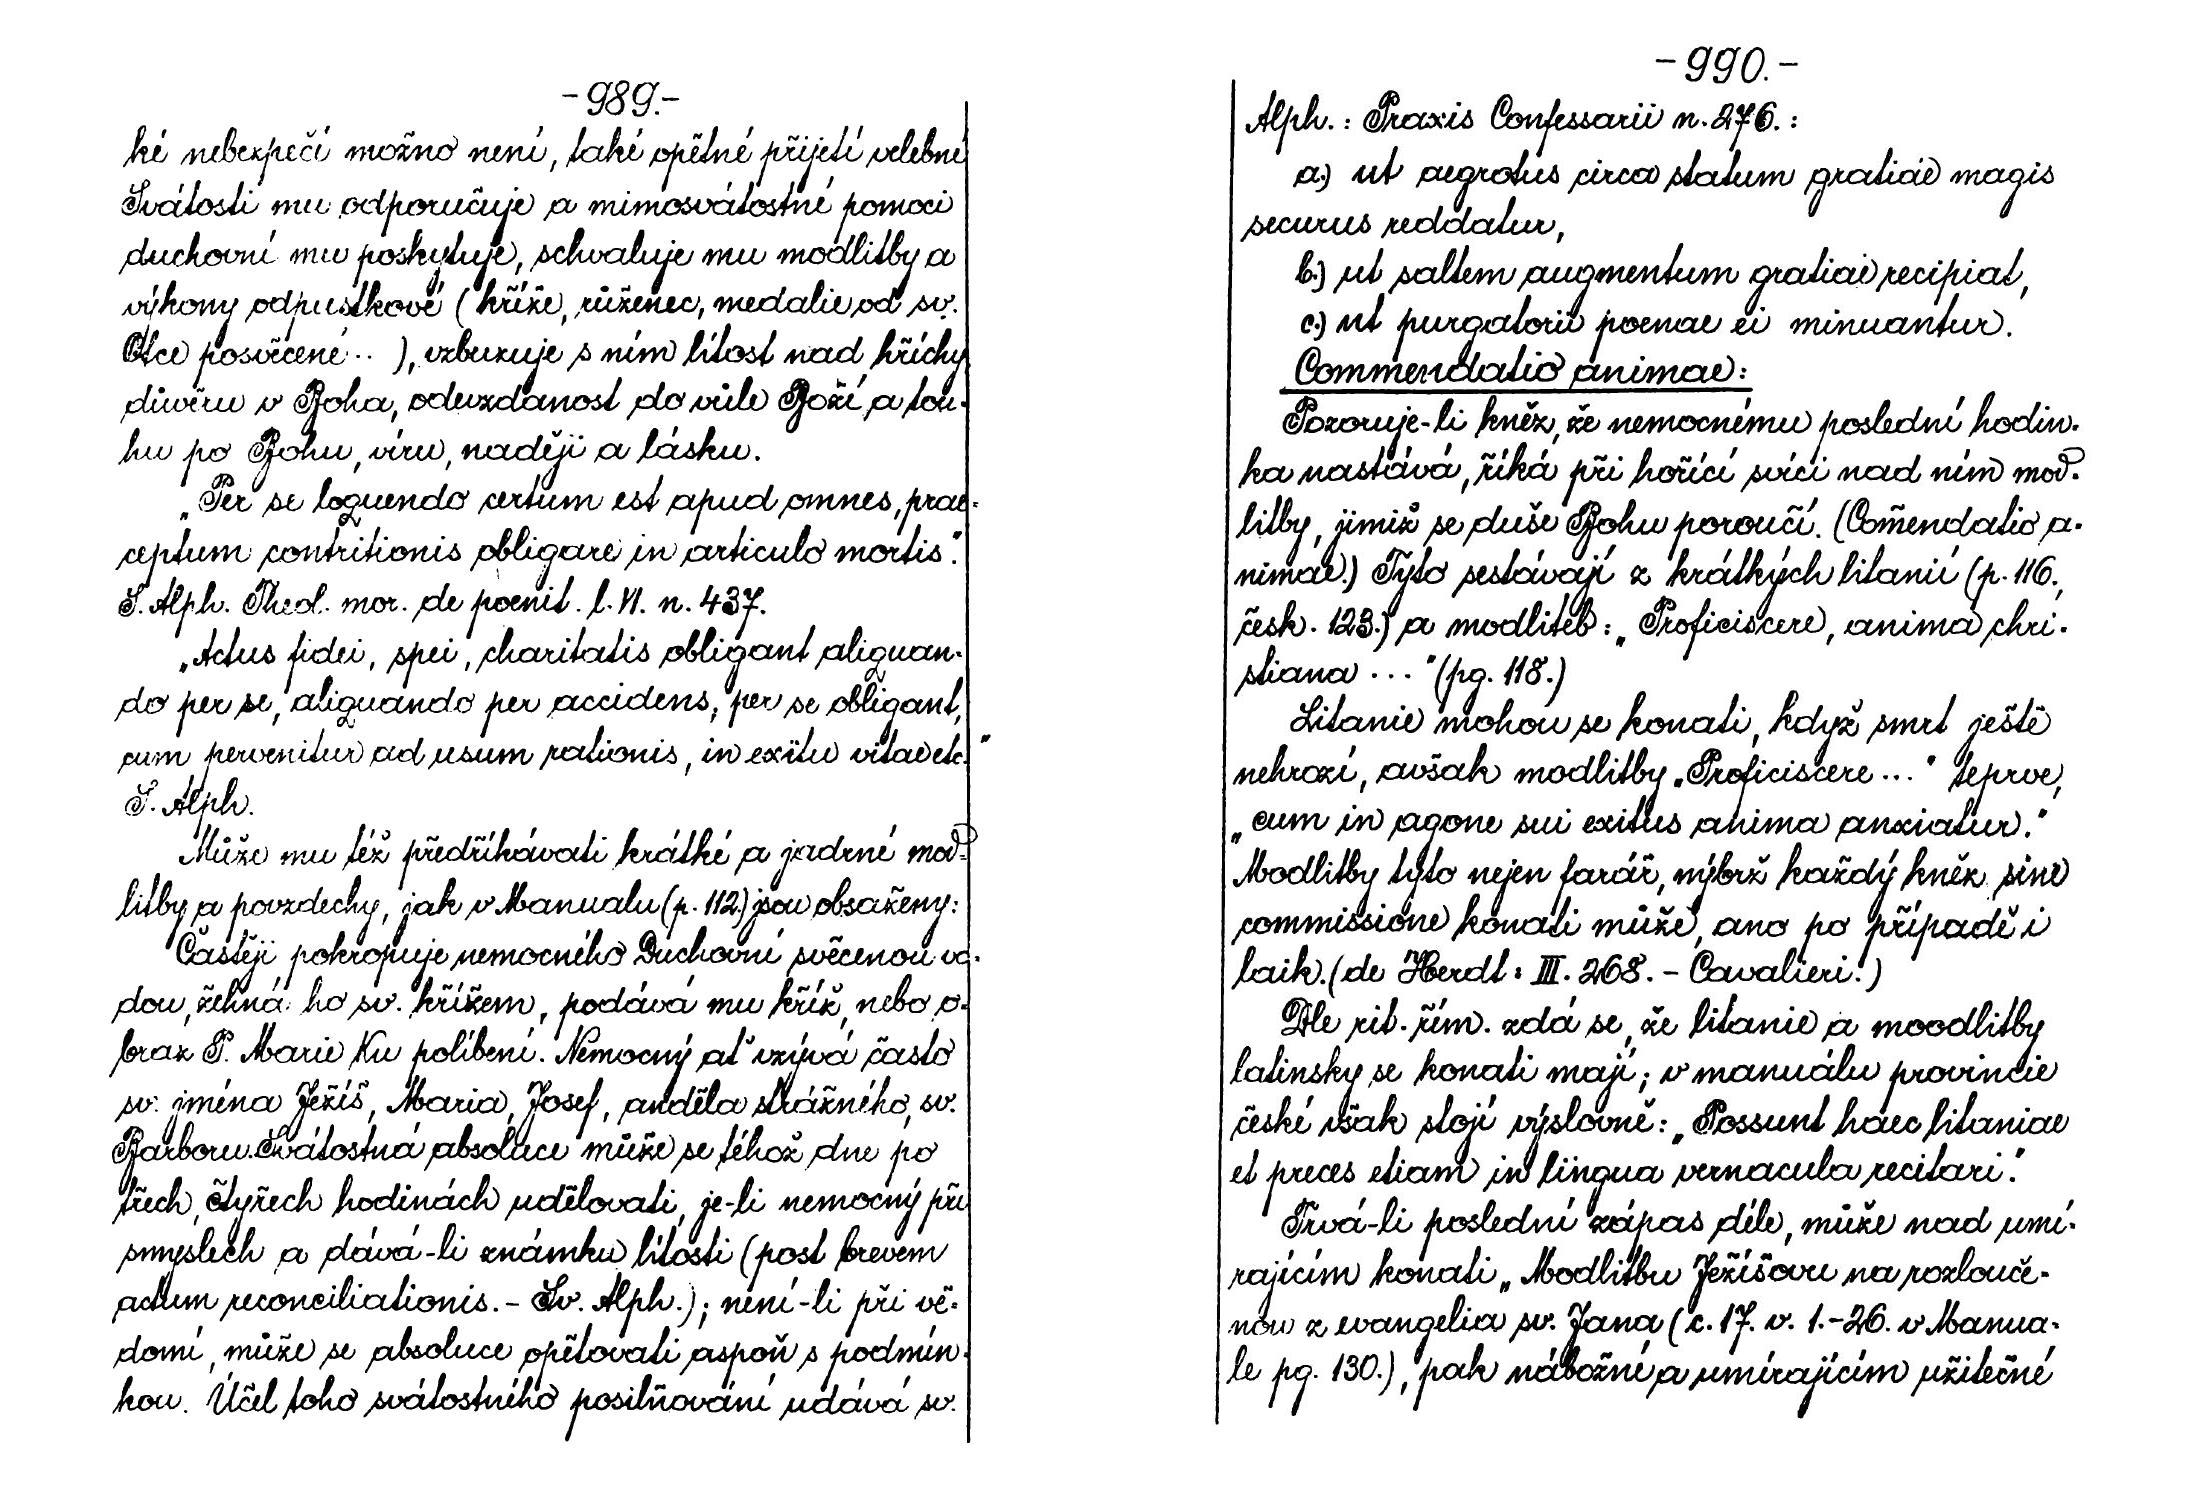 -989.-
ké nebezpečí možno není, také opětné přijetí velebné
Svátosti mu odporučuje a mimosvátostné pomoci
duchovní mu poskytuje, schvaluje mu modlitby a
výkony odpustkové (kříže, růženec, medalie od sv.
Otce posvěcené..), vzbuzuje s ním lítost nad hříchy,
důvěru v Boha, odevzdanost do vůle Boží, a tou-
hu po Bohu, víru, naději a lásku.
„Per se loquendo certum est apud omnes, prae-
ceptum contritionis obligare in articulo mortis".
S. Alph. Theol. mor. de poenit. l. VI. n. 437.
„Actus fidei, spei, charitatis obligant aliquan-
do per se, aliquando per accidens; per se obligant,
cum pervenitur ad usum rationis, in exitu vitae etc."
S. Alph.
Může mu též předříkávati krátké a jadrné mod-
litby a povzdechy, jak v Manualu (p. 112.) jsou obsaženy:
Častěji pokropuje nemocného Duchovní svěcenou vo-
dou, žehná ho sv. křížem, podává mu kříž, nebo o-
braz P. Marie Ku políbení. Nemocný ať vzývá často
sv. jména Ježíš, Maria, Josef, anděla strážného, sv.
Barboru. Svátostná absoluce může se téhož dne po
třech, čtyřech hodinách udělovati, je-li nemocný při
smyslech a dává-li známku lítosti (post brevem
actum reconciliationis. - Sv. Alph.); není-li při vě-
domí, může se absoluce opětovati aspoň s podmín-
kou. Účel toho svátostného posilňování udává sv.
-990.-
Alph.: Praxis Confessarii n. 276.:
a.) ut aegrotus circa statum gratiae magis
securus reddatur,
b.) ut saltem augmentum gratiae recipiat,
c.) ut purgatorii poenae ei minuantur.
Commendatio animae:
Pozoruje-li kněz, že nemocnému poslední hodin-
ka nastává, říká při hořící svíci nad ním mod-
litby, jimiž se duše Bohu poroučí. (Com̄endatio a-
nimae.) Tyto sestávají z krátkých litanií (p. 116.,
česk. 123.) a modliteb: „Proficiscere, anima chri-
stiana ..." (pg. 118.)
Litanie mohou se konati, když smrt ještě
nehrozí, avšak modlitby „Proficiscere ..." teprve,
„cum in agone sui exitus anima anxiatur."
Modlitby tyto nejen farář, nýbrž každý kněz sine
commissione konati může, ano po případě i
laik. (de Herdt: III. 268. - Cavalieri.)
Dle rit. řím. zdá se, že litanie a moodlitby
latinsky se konati mají; v manuálu provincie
české však stojí výslovně: „Possunt haec litaniae
et preces etiam in lingua vernacula recitari."
Trvá-li poslední zápas déle, může nad umí-
rajícím konati „Modlitbu Ježíšovu na rozlouče-
nou z evangelia sv. Jana (c. 17. v. 1.-26. v Manua-
le pg. 130.), pak nábožné a umírajícím užitečné